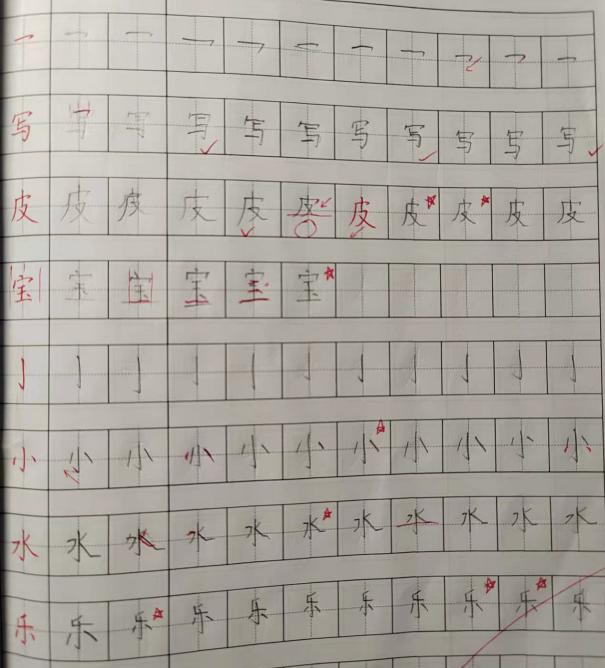 乛乛乛乛乛乛乛乛乛乛乛
写写写写写写写写写写写
皮皮皮皮皮皮皮皮皮皮皮
宝宝宝宝宝宝
亅亅亅亅亅亅亅亅亅亅亅
小小小小小小小小小小小
水水水水水水水水水水水
乐乐乐乐乐乐乐乐乐乐乐